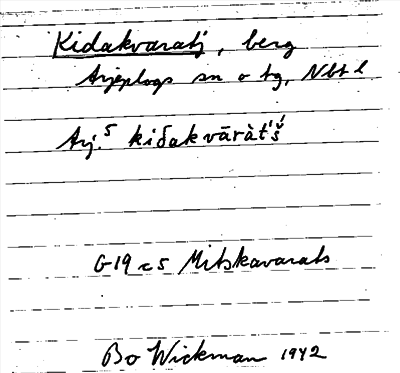 Kidakvaratj, berg
Arjeplogs sn o tg, Nbt l
Arj.5 kiδakvāràt'š́
G19 c5 Mitskavarats
Bo Wickman 1942